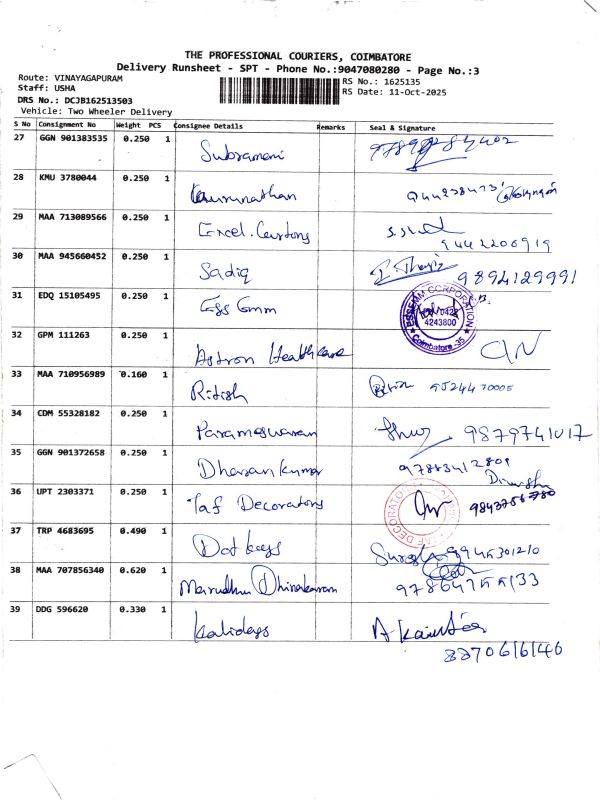 THE PROFESSIONAL COURIERS, COIMBATORE
Delivery Runsheet - SPT - Phone No.:9047080280 - Page No.:3
Route: VINAYAGAPURAM
Staff: USHA
DRS No.: DCJB162513503
Vehicle: Two Wheeler Delivery
RS No.: 1625135
RS Date: 11-Oct-2025
S No Consignment No Weight PCS Consignee Details Remarks Seal & Signature
27 GGN 901383535 0.250 1
Subramani
28 KMU 3780044 0.250 1
29 MAA 713089566 0.250 1
Excel. Cartons
9442206919
30 MAA 945660452 0.250 1
Sadiq 9894129991
31 EDQ 15105495 0.250 1
Ess Emm
ESSEMM CORPORATION
0422
4243800
Coimbatore-35
32 GPM 111263 0.250 1
Astron Healthcare
33 MAA 710956989 0.160 1
Ritish
34 CDM 55328182 0.250 1
Parameswaran 9879741017
35 GGN 901372658 0.250 1
Dharan Kumar
36 UPT 2303371 0.250 1
Taf Decorators
37 TRP 4683695 0.490 1
Dot kays
38 MAA 707856340 0.620 1
Marudhu Dhinakaran
39 DDG 596620 0.330 1
Kalidays
8870616146